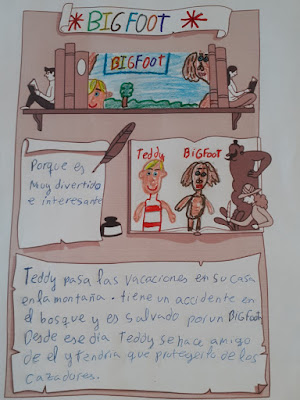 BIGFOOT
BIGFOOT
Porque es
muy divertido
e interesante
Teddy
BiGFOOT
Teddy pasa las vacaciones en su casa
en la montaña. tiene un accidente en
el bosque y es salvado por un BIGFoot.
Desde ese dia Teddy se hace amigo
de el y tendria que protegerlo de los
cazadores.